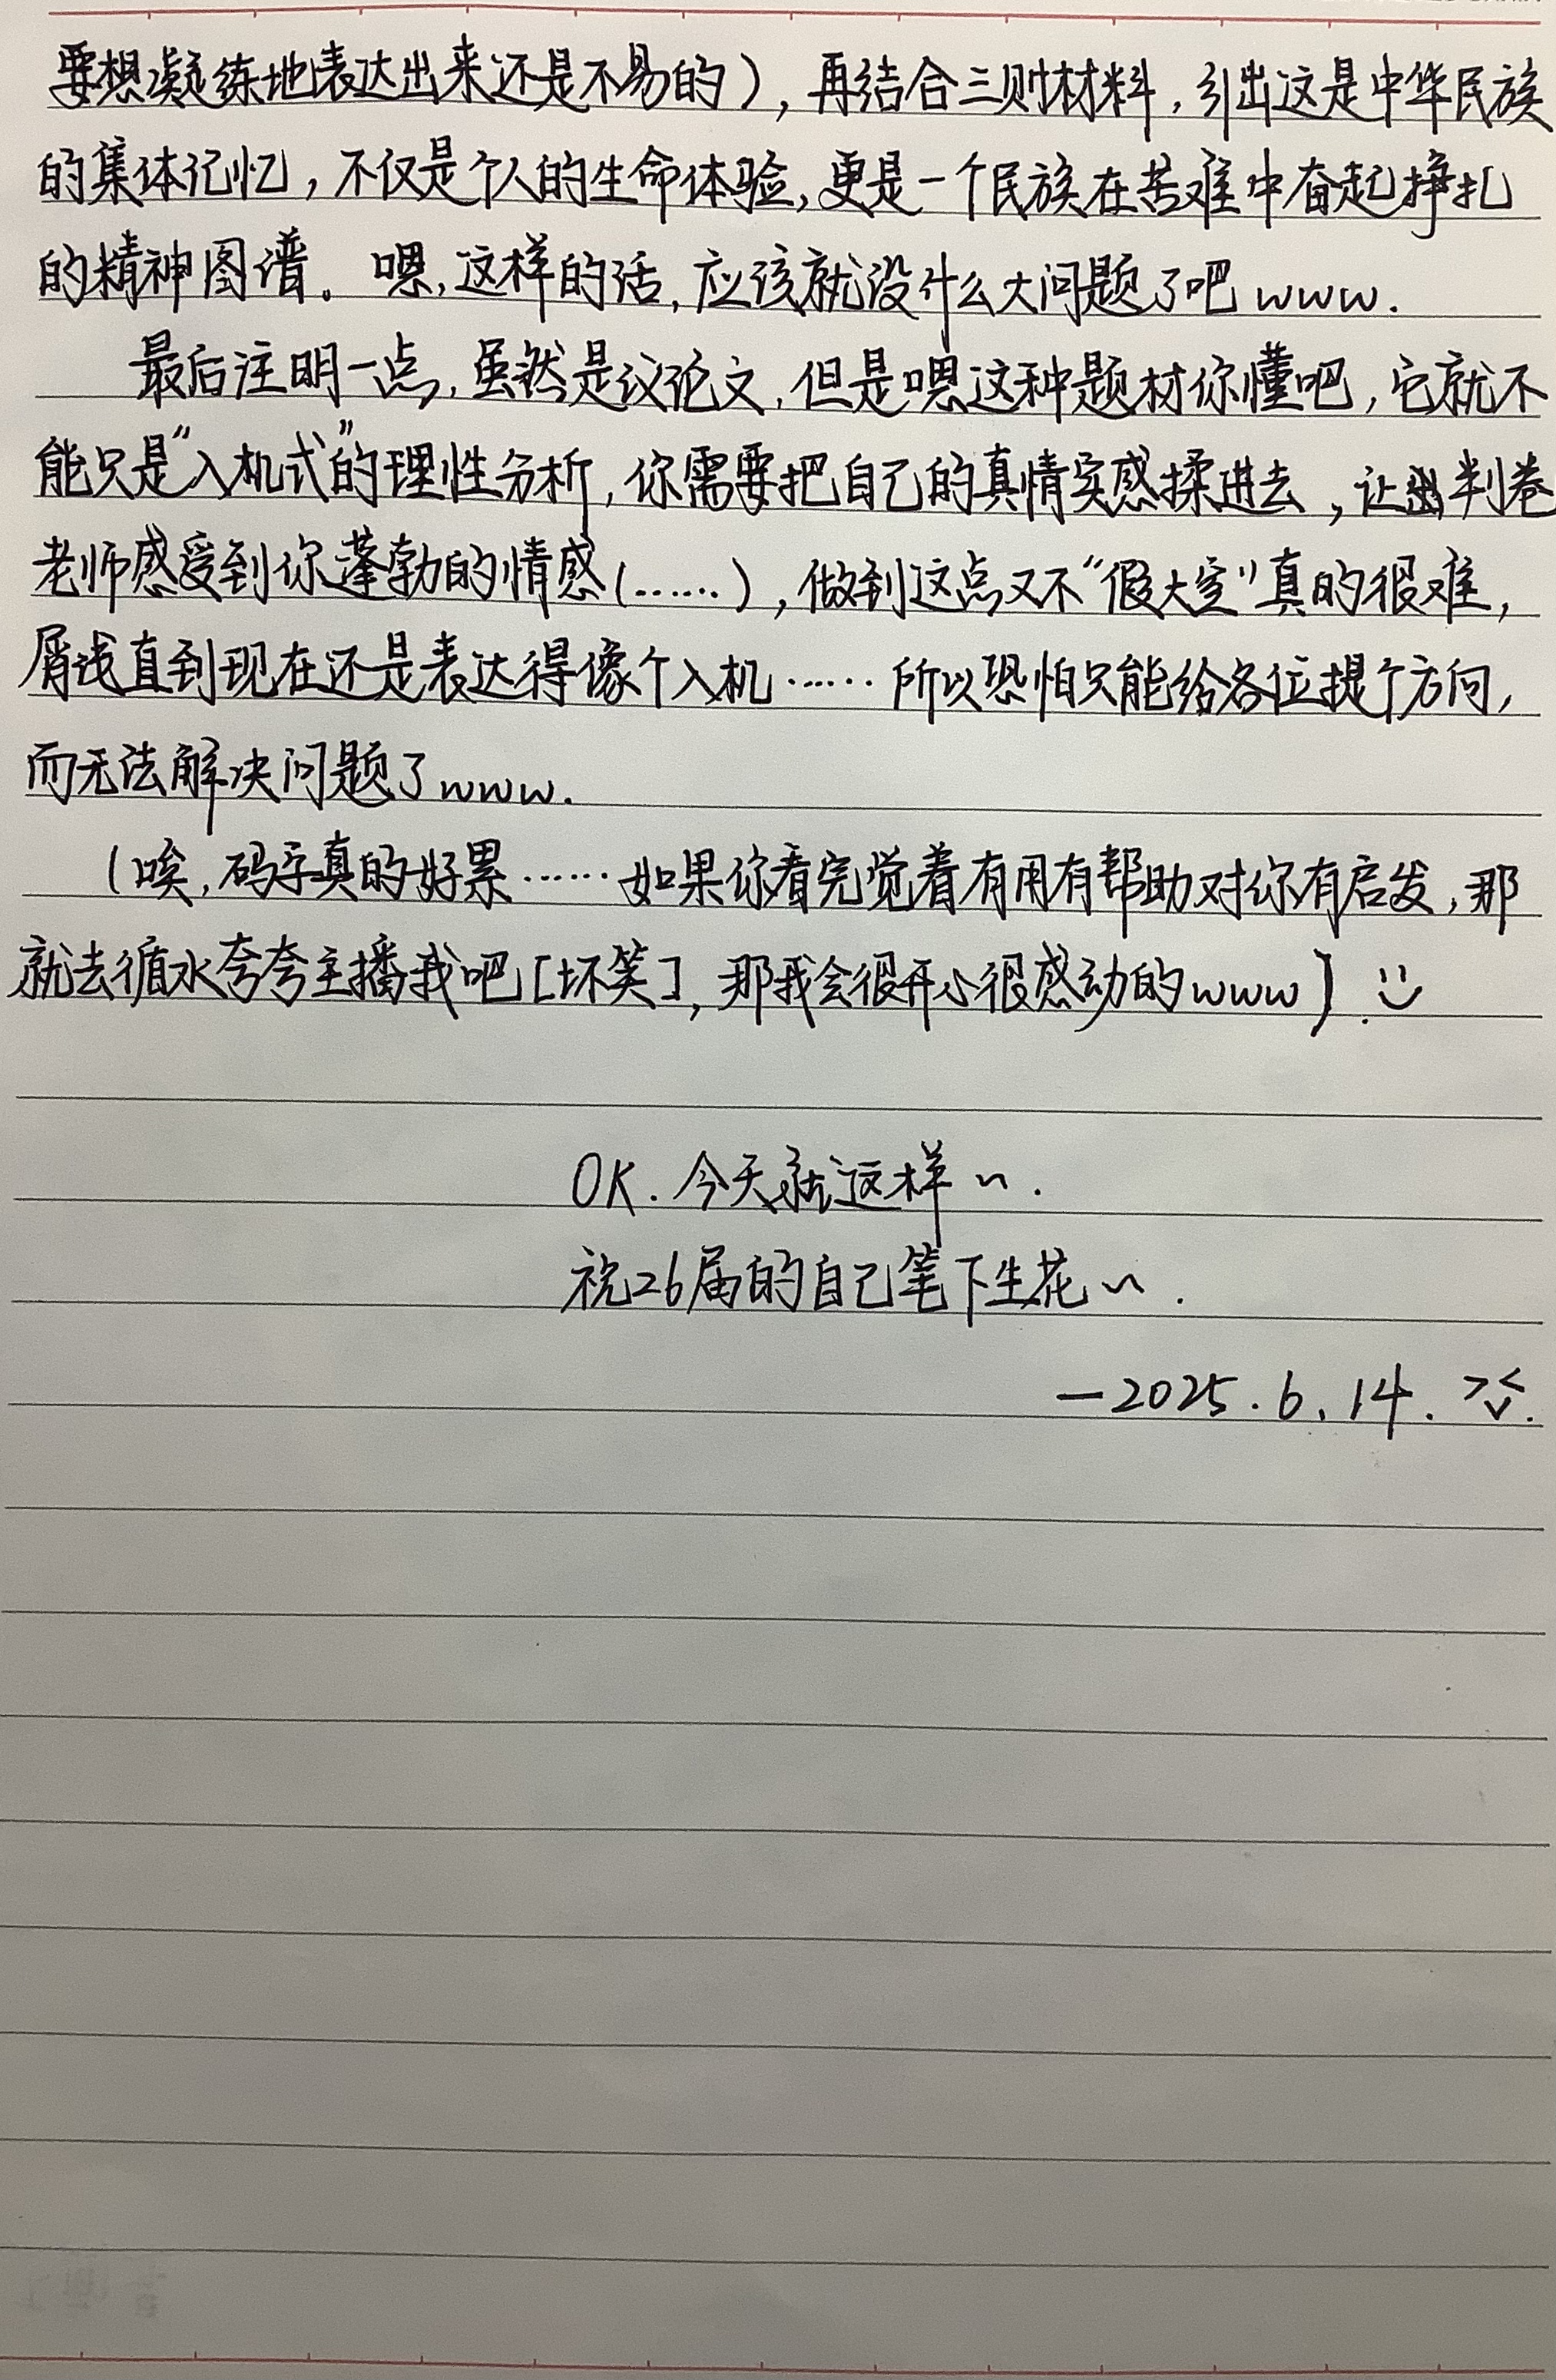 要想凝练地表达出来还是不易的），再结合三则材料，引出这是中华民族
的集体记忆，不仅是个人的生命体验，更是一个民族在苦难中奋起挣扎
的精神图谱。嗯，这样的话，应该就没什么大问题了吧www.
最后注明一点，虽然是议论文，但是嗯这种题材你懂吧，它就不
能只是“入机式”的理性分析，你需要把自己的真情实感揉进去，让判卷
老师感受到你蓬勃的情感（……），做到这点又不“假大空”真的很难，
屑浅直到现在还是表达得像个入机……所以恐怕只能给各位提个方向，
而无法解决问题了www.
（唉，码字真的好累……如果你看完觉着有用有帮助对你有启发，那
就去循水夸夸主播我吧[坏笑]，那我会很开心很感动的www）.
OK.今天就这样~.
祝26届的自己笔下生花~.
—2025.6.14.